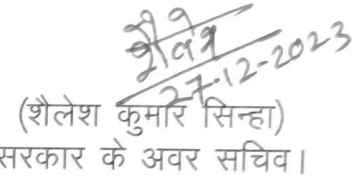 शैलेश
27-12-2023
(शैलेश कुमार सिन्हा)
सरकार के अवर सचिव।